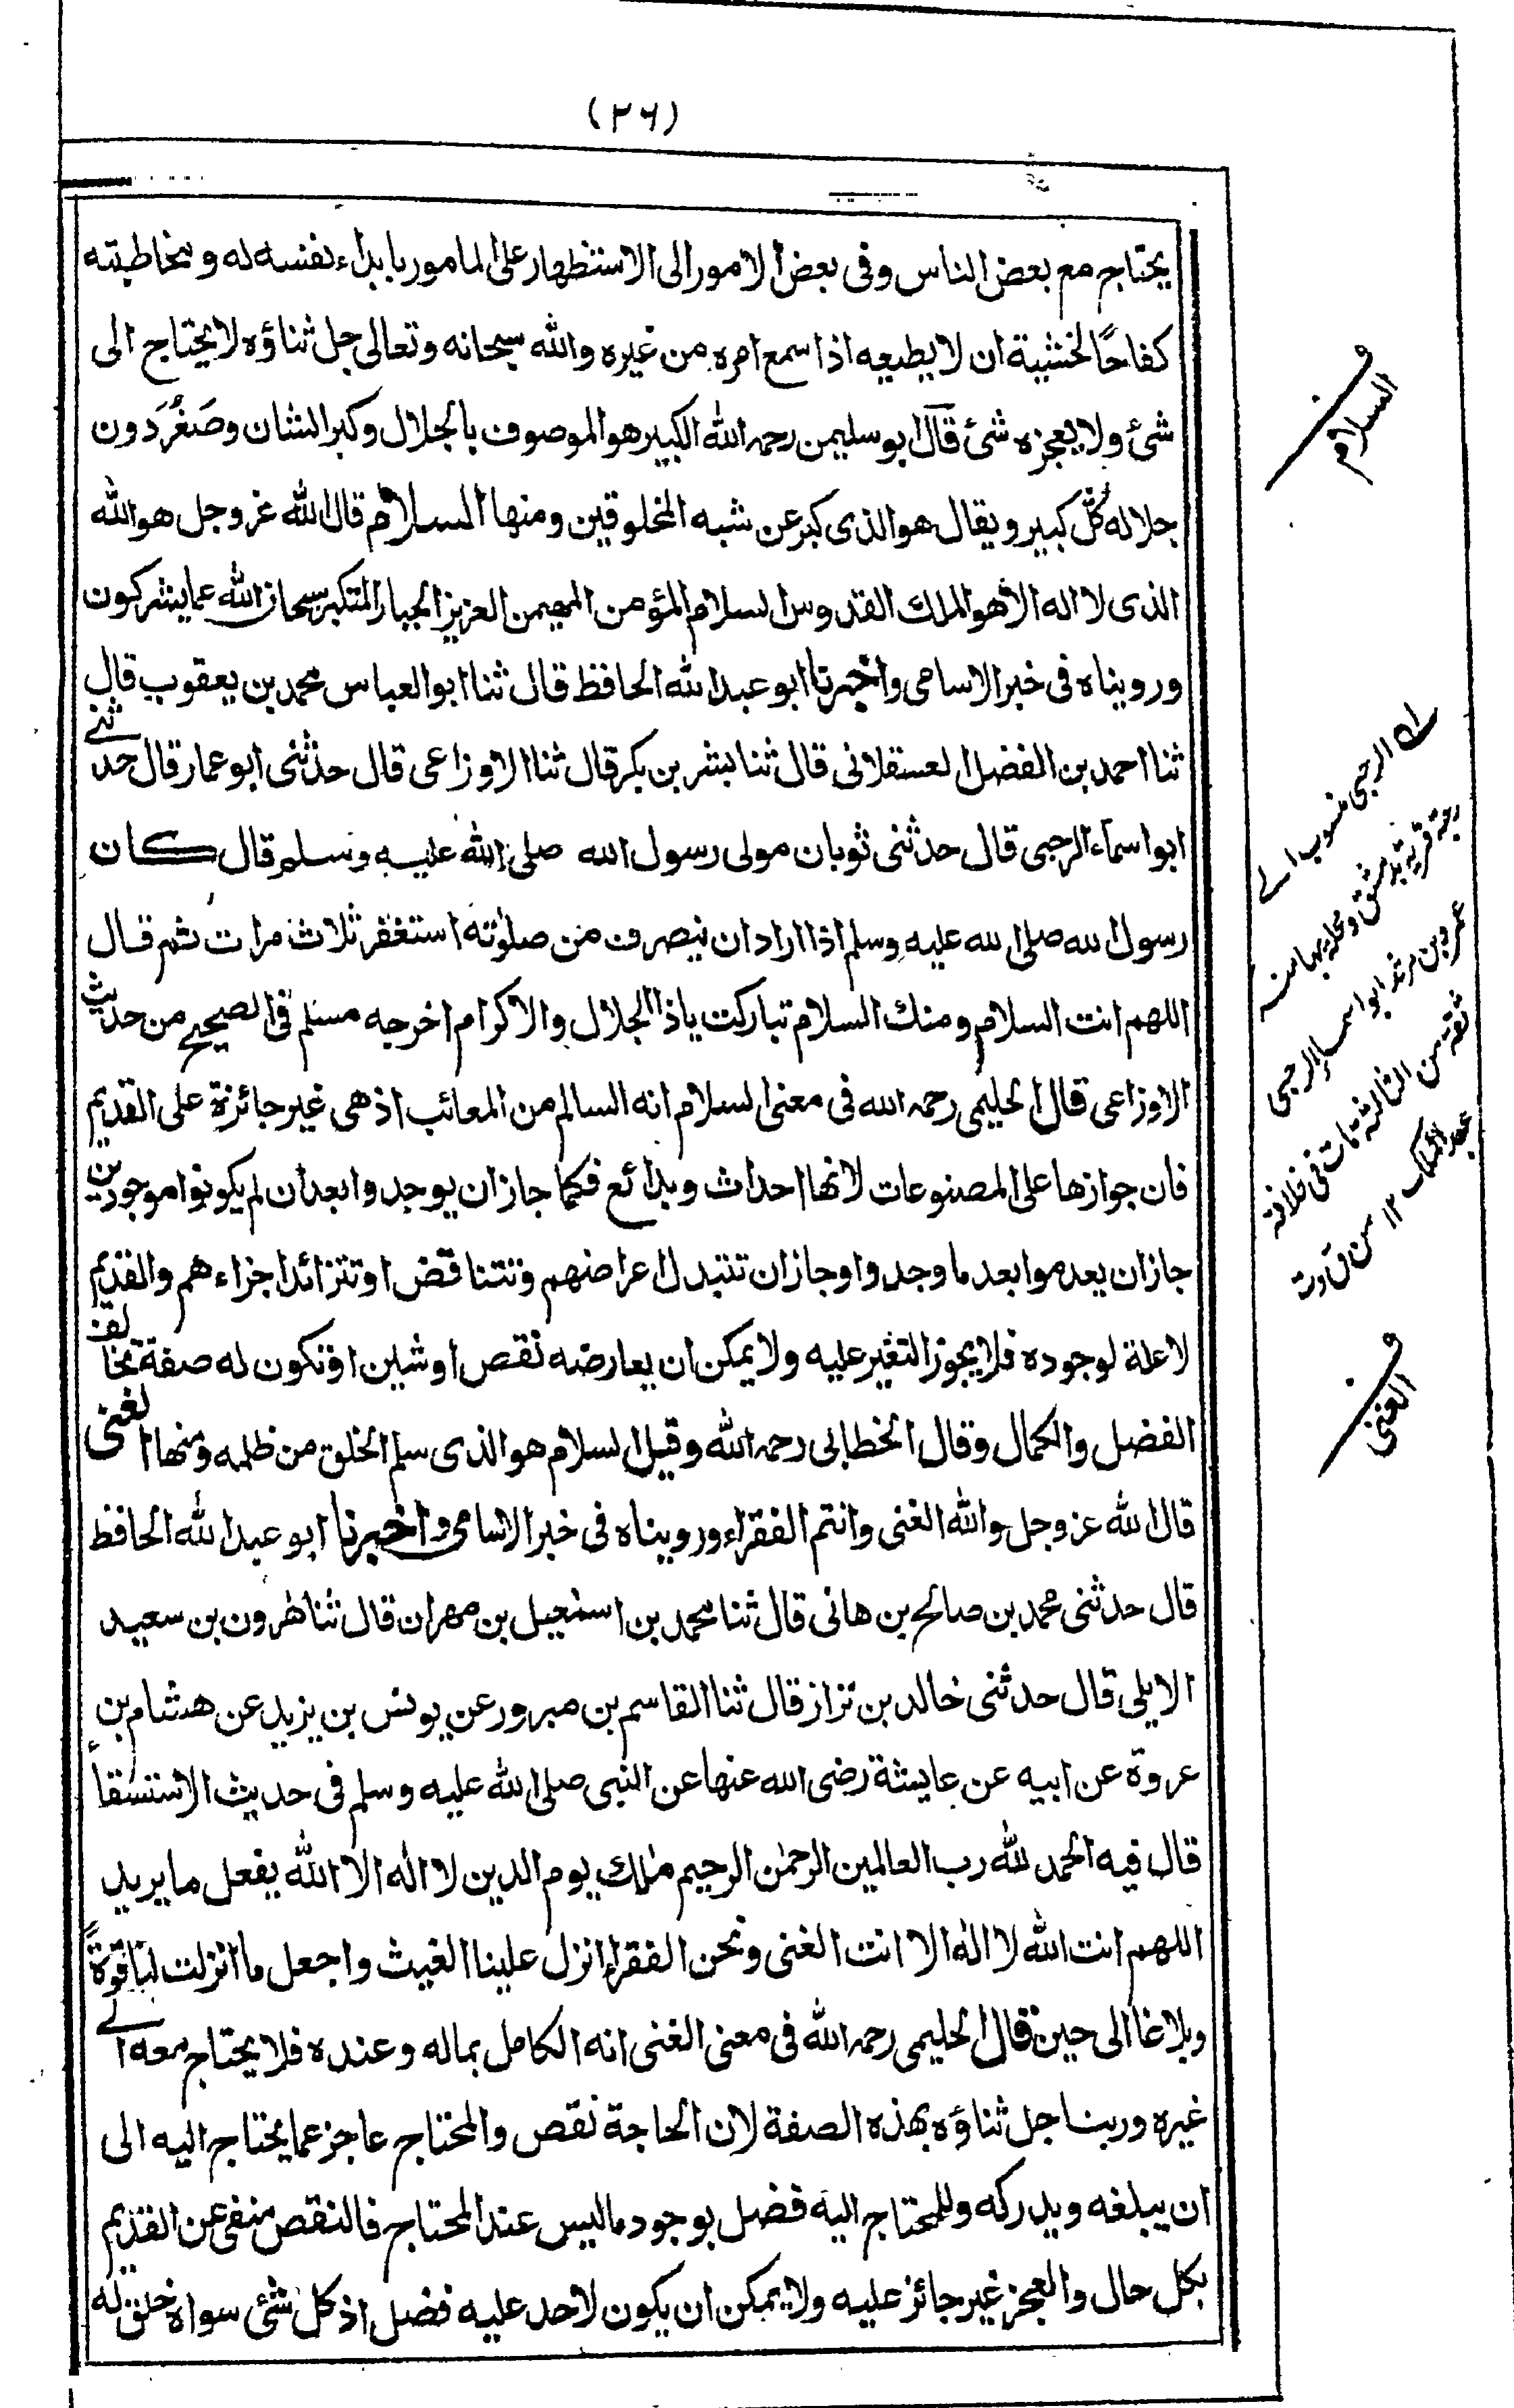 (٢٦)
يحتاج مع بعض الناس وفى بعض الامور الى الاستظهار على المامور بابداء نفسه له وبمخاطبته
كفاحًا لخشية ان لا يطيعه اذا سمع امره من غيره والله سبحانه وتعالى جل ثناؤه لا يحتاج الى
شئ ولا يعجزه شئ قال ابو سليمن رحمه الله الكبير هو الموصوف بالجلال وكبر الشان وصَغُرَ دون
جلاله كُلُّ كبير ويقال هو الذى كبر عن شبه المخلوقين ومنها السلام قال الله عز وجل هو الله
الذى لا اله الا هو الملك القدوس السلام المؤمن المهيمن العزيز الجبار المتكبر سبحان الله عما يشركون
ورويناه فى خبر الاسامى واخبرنا ابو عبد الله الحافظ قال ثنا ابو العباس محمد بن يعقوب قال
ثنا احمد بن الفضل العسقلانى قال ثنا بشر بن بكر قال ثنا الاوزاعى قال حدثنى ابو عمار قال حدثنے
ابو اسماء الرحبى قال حدثنى ثوبان مولى رسول الله صلى الله عليه وسلم قال كان
رسول الله صلى الله عليه وسلم اذا اراد ان ينصرف من صلوٰته استغفر ثلاث مرات ثم قال
اللهم انت السلام ومنك السلام تباركت ياذا الجلال والاكرام اخرجه مسلم فى الصحيح من حديث
الاوزاعى قال الحليمى رحمه الله فى معنى السلام انه السالم من المعائب اذ هى غير جائزة على القديم
فان جوازها على المصنوعات لانها احداث وبدائع فكما جاز ان يوجدوا بعد ان لم يكونوا موجودين
جاز ان يعدموا بعد ما وجدوا وجاز ان تتبدل اعراضهم وتتناقض او تتزائد اجزاءهم والقديم
لا علة لوجوده فلا يجوز التغير عليه ولا يمكن ان يعارضه نقص او شين او تكون له صفة تخالف
الفضل والكمال وقال الخطابى رحمه الله وقيل السلام هو الذى سلم الخلق من ظلمه ومنها الغنى
قال الله عز وجل والله الغنى وانتم الفقراء ورويناه فى خبر الاسامى واخبرنا ابو عبد الله الحافظ
قال حدثنى محمد بن صالح بن هانى قال ثنا محمد بن اسمٰعيل بن مهران قال ثنا هٰرون بن سعيد
الايلى قال حدثنى خالد بن نزار قال ثنا القاسم بن مبرور عن يونس بن يزيد عن هشام بن
عروة عن ابيه عن عايشة رضى الله عنها عن النبى صلى الله عليه وسلم فى حديث الاستسقاء
قال فيه الحمد لله رب العالمين الرحمٰن الرحيم مٰلك يوم الدين لا الٰه الا الله يفعل ما يريد
اللهم انت الله لا الٰه الا انت الغنى ونحن الفقراء انزل علينا الغيث واجعل ما انزلت لنا قوةً
وبلاغا الى حين قال الحليمى رحمه الله فى معنى الغنى انه الكامل بماله وعنده فلا يحتاج معه الے
غيره وربنا جل ثناؤه بهذه الصفة لان الحاجة نقص والمحتاج عاجز عما يحتاج اليه الى
ان يبلغه ويدركه وللمحتاج اليه فضل بوجود ما ليس عند المحتاج فالنقص منفى عن القديم
بكل حال والعجز غير جائز عليه ولا يمكن ان يكون لاحد عليه فضل اذ كل شئ سواه خلق له
ف السلام
لہ الرحبى منسوب الے
رحبة قرية بدمشق ومحلة بها
عمرو بن مرثد ابو اسماء الرحبى
ثقة من الثالثة مات فى خلافة
عبد الملك ١٢
ف الغنى